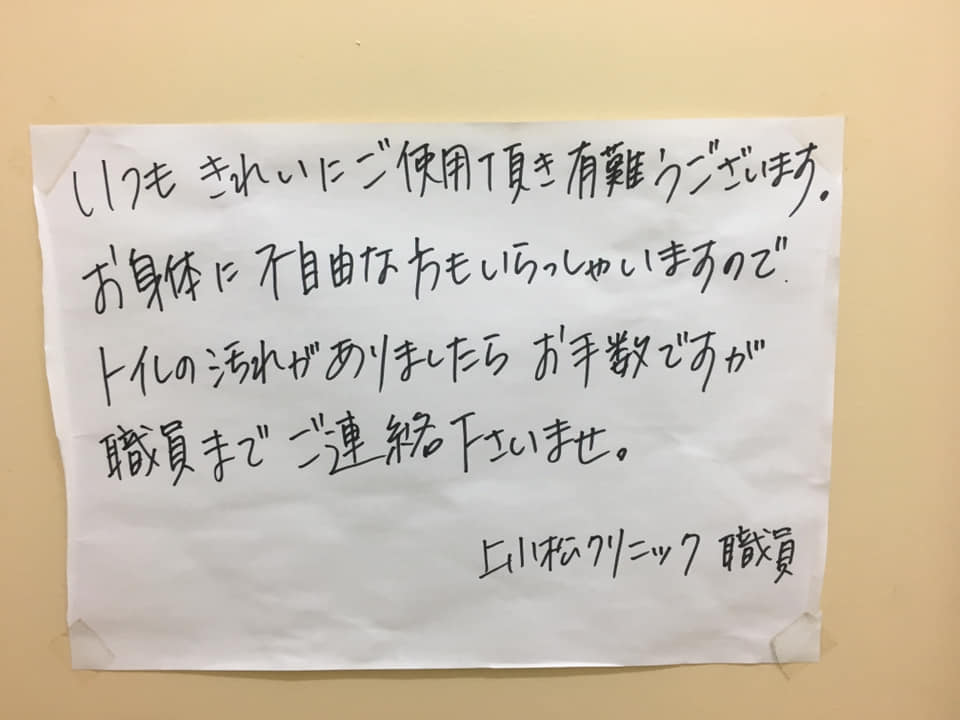 いつも きれいにご使用頂き有難うございます。
お身体に不自由な方もいらっしゃいますので
トイレの汚れがありましたら お手数ですが
職員まで ご連絡下さいませ。
上小松クリニック 職員